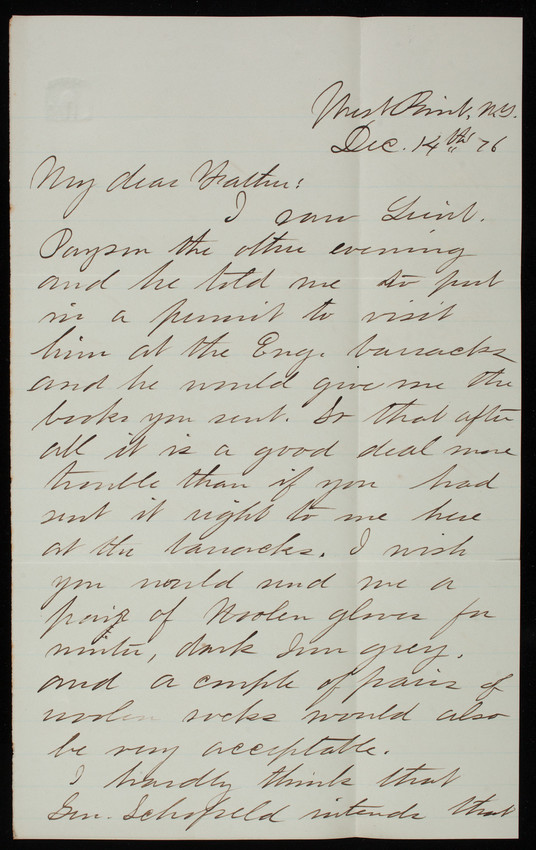 West Point, N.Y.
Dec. 14th 76
My dear Father:
I saw Lieut.
Payson the other evening
and he told me to put
in a permit to visit
him at the Eng. barracks
and he would give me the
books you sent. So that after
all it is a good deal more
trouble than if you had
sent it right to me here
at the barracks. I wish
you would send me a
pair of Woolen gloves for
winter, dark grey.
and a couple of pairs of
woolen socks would also
be very acceptable.
I hardly think that
Gen. Schofield intends that